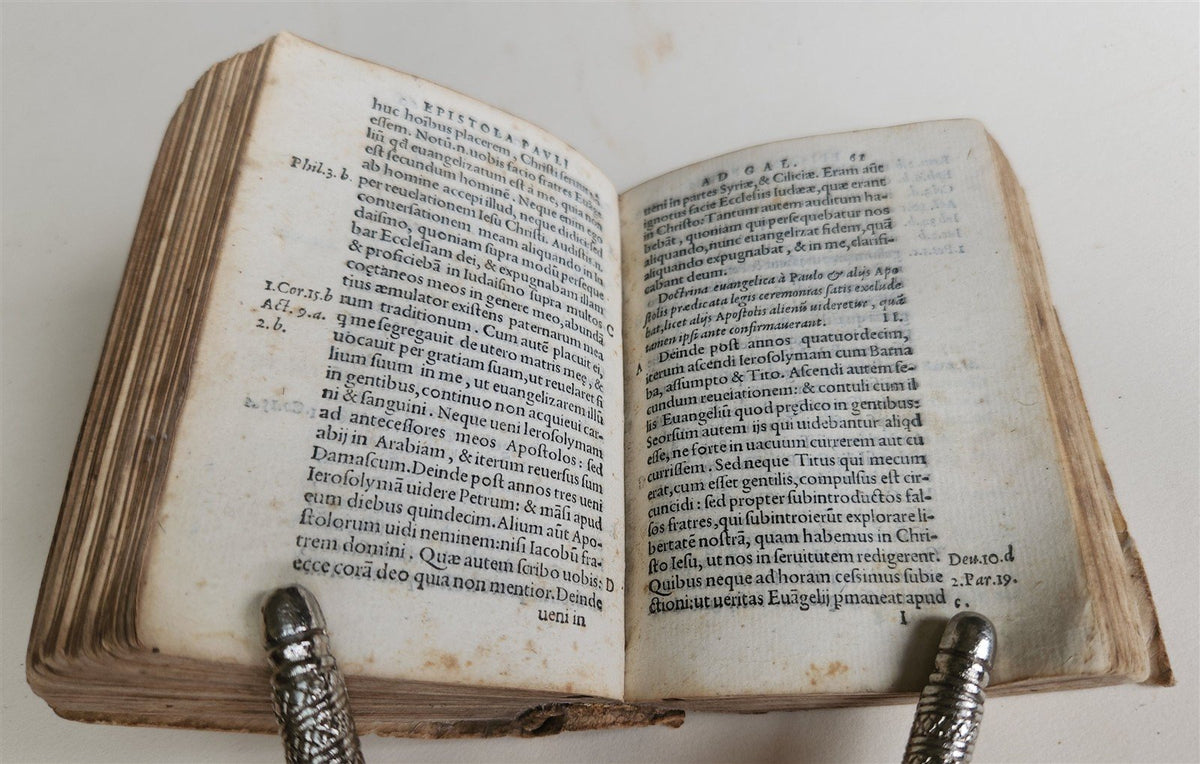 EPISTOLA PAVLI
huc hoibus placerem, Christi seruus nō
essem. Notū.n. uobis facio fratres Euāge
liū qd euangelizatum est à me, quia non
est secundum hominē. Neque enim ego
Phil.3.b.
ab homine accepi illud, neque didici, sed
per reuelationem Iesu Christi. Audistis.n.
conuersationem meam aliquando in Iu
daismo, quoniam supra modū perseque
bar Ecclesiam dei, & expugnabam illam
& proficiebā in Iudaismo supra multos
coętaneos meos in genere meo, abundā
tius æmulator existens paternarum mea
C
1.Cor.15.b
rum traditionum. Cum autē placuit ei,
Act.9.a.
q me segregauit de utero matris meę, &
2.b.
uocauit per gratiam suam, ut reuelaret fi
lium suum in me, ut euangelizarem illū
in gentibus, continuo non acquieui car-
ni & sanguini. Neque ueni Ierosolymam
ad antecessores meos Apostolos: sed
abij in Arabiam, & iterum reuersus sum
Damascum. Deinde post annos tres ueni
Ierosolymā uidere Petrum: & māsi apud
eum diebus quindecim. Alium aūt Apo-
stolorum uidi neminem: nisi Iacobū fra-
trem domini. Quæ autem scribo uobis:
D
ecce corā deo quia non mentior. Deinde
ueni in
AD GAL. 61
ueni in partes Syriæ, & Ciliciæ. Eram aūt
ignotus facie Ecclesiis Iudææ, quæ erant
in Christo: Tantum autem auditum ha-
bebāt, quoniam qui persequebatur nos
aliquando, nunc euangelizat fidem, quā
aliquando expugnabat, & in me, clarifi-
cabant deum.
Doctrina euangelica à Paulo & alijs Apo
stolis prædicata legis ceremonias satis exclude
bat, licet alijs Apostolis alienū uideretur, quā
tamen ipsi ante confirmauerant.
II.
A
Deinde post annos quatuordecim,
iterum ascendi Ierosolymam cum Barna
ba, assumpto & Tito. Ascendi autem se-
cundum reuelationem: & contuli cum il
lis Euangeliū quod prędico in gentibus:
Seorsum autem ijs qui uidebantur aliqd
esse, ne forte in uacuum currerem aut cu
currissem. Sed neque Titus qui mecum
erat, cum esset gentilis, compulsus est cir-
cuncidi: sed propter subintroductos fal-
sos fratres, qui subintroierūt explorare li-
bertatē nostrā, quam habemus in Chri-
sto Iesu, ut nos in seruitutem redigerent.
Deu.10.d
Quibus neque ad horam cessimus subie
2.Par.19.
ctioni: ut ueritas Euāgelij pmaneat apud
c.
I